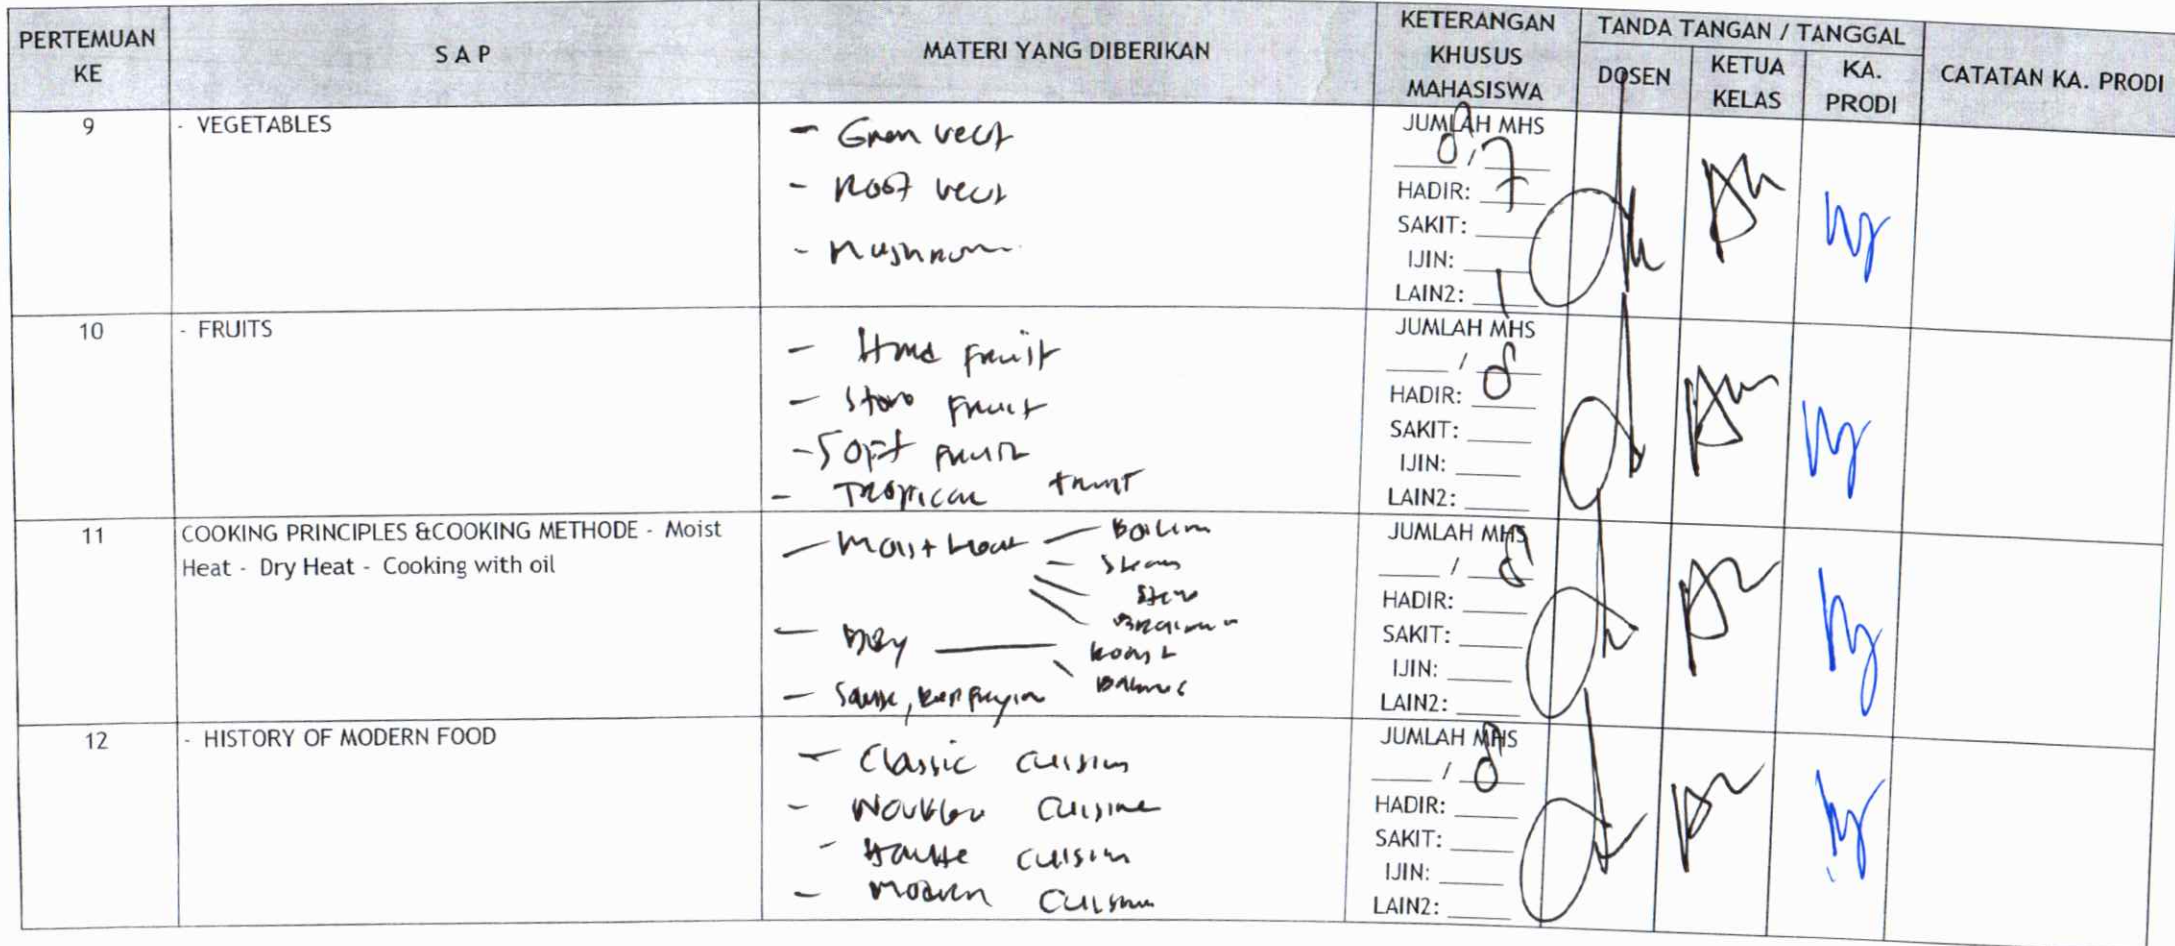 PERTEMUAN KE
S A P
MATERI YANG DIBERIKAN
KETERANGAN KHUSUS MAHASISWA
TANDA TANGAN / TANGGAL
DOSEN
KETUA KELAS
KA. PRODI
CATATAN KA. PRODI
9
- VEGETABLES
- Root
JUMLAH MHS
8 / 7
HADIR: 7
SAKIT:
IJIN:
LAIN2: 1
10
- FRUITS
- Hard fruit
- Stone fruit
- Soft fruit
- Tropical fruit
JUMLAH MHS
/ 8
HADIR:
SAKIT:
IJIN:
LAIN2:
11
COOKING PRINCIPLES &COOKING METHODE - Moist
Heat - Dry Heat - Cooking with oil
- Moist heat - Boiling
- Steam
Stew
- Dry
Roast
JUMLAH MHS
/ 8
HADIR:
SAKIT:
IJIN:
LAIN2:
12
- HISTORY OF MODERN FOOD
- Classic cuisine
- cuisine
- Haute cuisine
- Modern cuisine
JUMLAH MHS
/ 8
HADIR:
SAKIT:
IJIN:
LAIN2: